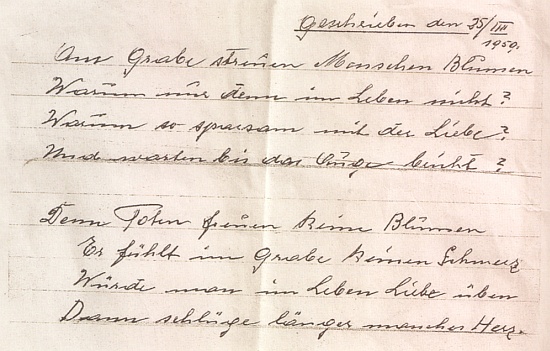 Geschrieben den 25/VIII
1950.
Am Grabe streuen Menschen Blumen
Warum nur denn im Leben nicht?
Warum so sparsam mit der Liebe?
Und warten bis das Auge bricht?
Denn Toten freuen keine Blumen
Er fühlt im Grabe keinen Schmerz
Würde man im Leben Liebe üben
Dann schlüge länger manches Herz.